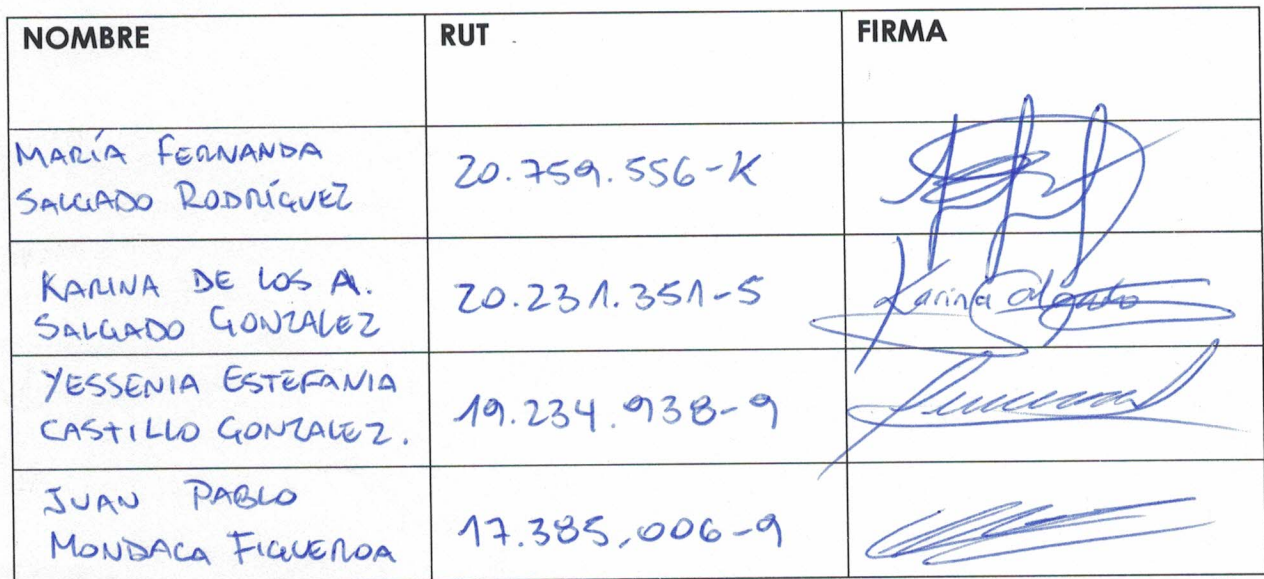 NOMBRE RUT FIRMA
MARÍA FERNANDA
SALGADO RODRÍGUEZ
20.759.556-K
KARINA DE LOS A.
SALGADO GONZALEZ
20.231.351-5
Karina
YESSENIA ESTEFANIA
CASTILLO GONZALEZ.
19.234.938-9
JUAN PABLO
MONDACA FIGUEROA
17.385.006-9